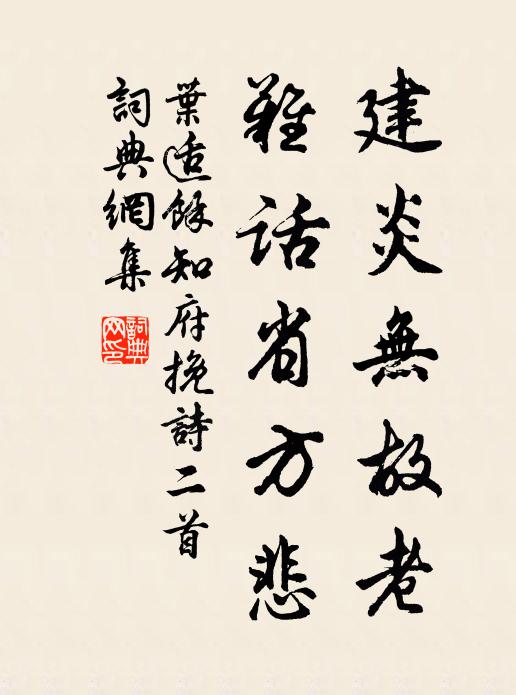 建炎無故老
難話省方悲
葉适餘知府挽詩二首
詞典網集
詞典
网印